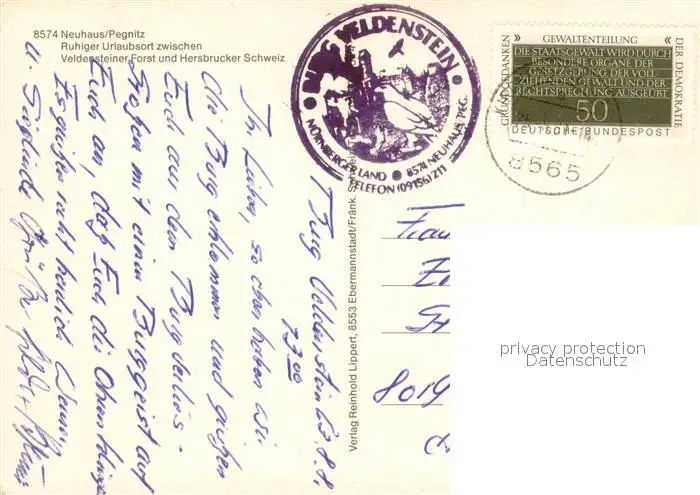 8574 Neuhaus/Pegnitz
Ruhiger Urlaubsort zwischen
Veldensteiner Forst und Hersbrucker Schweiz
BURG VELDENSTEIN
NÜRNBERGER LAND 8574 NEUHAUS PEG.
TELEFON (09156) 211
» GEWALTENTEILUNG «
DIE STAATSGEWALT WIRD DURCH
BESONDERE ORGANE DER
GESETZGEBUNG DER VOLL
ZIEHENDEN GEWALT UND DER
RECHTSPRECHUNG AUSGEÜBT
50
DEUTSCHE BUNDESPOST
GRUNDGEDANKEN
DER DEMOKRATIE
8565
Burg Veldenstein
Ihr Lieben, so eben haben wir
die Burg erklommen und grüßen
Euch aus dem Burgverlies.
Stoßen mit einem Burggeist auf
Euch an, daß Euch die Ohren klingen
Es grüßen recht herzlich
u. Sieglinde
Verlag Reinhold Lippert, 8553 Ebermannstadt/Fränk.
Frau
8019
privacy protection
Datenschutz